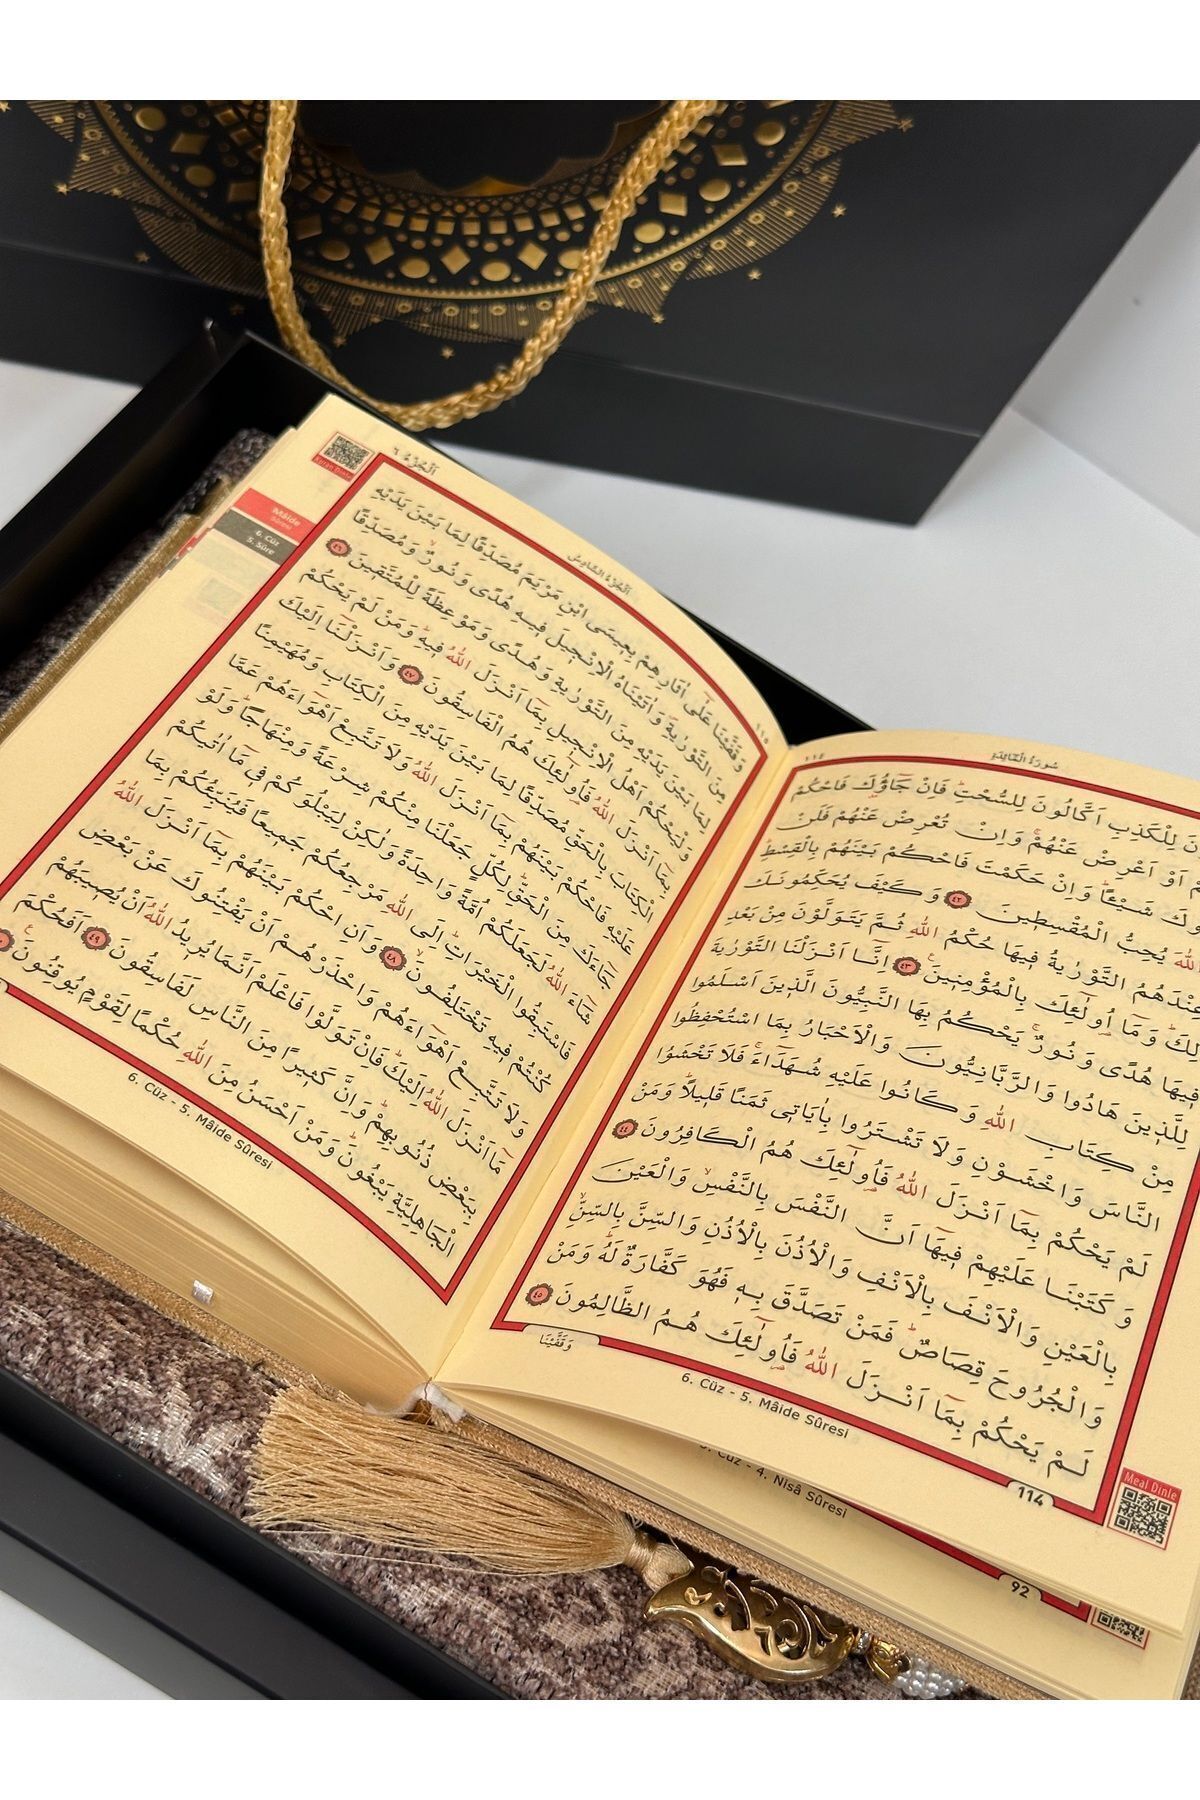 سُورَةُ الْمَٓائِدَةِ ١١٤
نَ لِلْكَذِبِ اَكَّالُونَ لِلسُّحْتِۜ فَاِنْ جَٓاؤُ۫كَ فَاحْكُمْ
مْ اَوْ اَعْرِضْ عَنْهُمْۚ وَاِنْ تُعْرِضْ عَنْهُمْ فَلَنْ
وكَ شَيْـًٔاۜ وَاِنْ حَكَمْتَ فَاحْكُمْ بَيْنَهُمْ بِالْقِسْطِۜ
اللّٰهَ يُحِبُّ الْمُقْسِط۪ينَ ٤٢ وَكَيْفَ يُحَكِّمُونَكَ
عِنْدَهُمُ التَّوْرٰيةُ ف۪يهَا حُكْمُ اللّٰهِ ثُمَّ يَتَوَلَّوْنَ مِنْ بَعْدِ
لِكَۜ وَمَٓا اُو۬لٰٓئِكَ بِالْمُؤْمِن۪ينَ۟ ٤٣ اِنَّٓا اَنْزَلْنَا التَّوْرٰيةَ
ف۪يهَا هُدًى وَنُورٌۚ يَحْكُمُ بِهَا النَّبِيُّونَ الَّذ۪ينَ اَسْلَمُوا
لِلَّذ۪ينَ هَادُوا وَالرَّبَّانِيُّونَ وَالْاَحْبَارُ بِمَا اسْتُحْفِظُوا
مِنْ كِتَابِ اللّٰهِ وَكَانُوا عَلَيْهِ شُهَدَٓاءَۚ فَلَا تَخْشَوُا
النَّاسَ وَاخْشَوْنِ وَلَا تَشْتَرُوا بِاٰيَات۪ي ثَمَنًا قَل۪يلًاۜ وَمَنْ
لَمْ يَحْكُمْ بِمَٓا اَنْزَلَ اللّٰهُ فَاُو۬لٰٓئِكَ هُمُ الْكَافِرُونَ ٤٤
وَكَتَبْنَا عَلَيْهِمْ ف۪يهَٓا اَنَّ النَّفْسَ بِالنَّفْسِۙ وَالْعَيْنَ
بِالْعَيْنِ وَالْاَنْفَ بِالْاَنْفِ وَالْاُذُنَ بِالْاُذُنِ وَالسِّنَّ بِالسِّنِّۙ
وَالْجُرُوحَ قِصَاصٌۜ فَمَنْ تَصَدَّقَ بِه۪ فَهُوَ كَفَّارَةٌ لَهُۜ وَمَنْ
لَمْ يَحْكُمْ بِمَٓا اَنْزَلَ اللّٰهُ فَاُو۬لٰٓئِكَ هُمُ الظَّالِمُونَ ٤٥
وَقَفَّيْنَا
114
6. Cüz - 5. Mâide Sûresi
Meal Dinle
5. Cüz - 4. Nisâ Sûresi
92
١١٥ اَلْجُزْءُ السَّادِسُ
اَلْجُزْءُ ٦
Kuran Dinle
Mâide
Sûresi
6. Cüz
5. Sûre
وَقَفَّيْنَا عَلٰٓى اٰثَارِهِمْ بِع۪يسَى ابْنِ مَرْيَمَ مُصَدِّقًا لِمَا بَيْنَ يَدَيْهِ
مِنَ التَّوْرٰيةِۖ وَاٰتَيْنَاهُ الْاِنْج۪يلَ ف۪يهِ هُدًى وَنُورٌۙ وَمُصَدِّقًا
لِمَا بَيْنَ يَدَيْهِ مِنَ التَّوْرٰيةِ وَهُدًى وَمَوْعِظَةً لِلْمُتَّق۪ينَۜ ٤٦
وَلْيَحْكُمْ اَهْلُ الْاِنْج۪يلِ بِمَٓا اَنْزَلَ اللّٰهُ ف۪يهِۜ وَمَنْ لَمْ يَحْكُمْ
بِمَٓا اَنْزَلَ اللّٰهُ فَاُو۬لٰٓئِكَ هُمُ الْفَاسِقُونَ ٤٧ وَاَنْزَلْنَٓا اِلَيْكَ
الْكِتَابَ بِالْحَقِّ مُصَدِّقًا لِمَا بَيْنَ يَدَيْهِ مِنَ الْكِتَابِ وَمُهَيْمِنًا
عَلَيْهِ فَاحْكُمْ بَيْنَهُمْ بِمَٓا اَنْزَلَ اللّٰهُ وَلَا تَتَّبِعْ اَهْوَٓاءَهُمْ عَمَّا
جَٓاءَكَ مِنَ الْحَقِّۜ لِكُلٍّ جَعَلْنَا مِنْكُمْ شِرْعَةً وَمِنْهَاجًاۜ وَلَوْ
شَٓاءَ اللّٰهُ لَجَعَلَكُمْ اُمَّةً وَاحِدَةً وَلٰكِنْ لِيَبْلُوَكُمْ ف۪ي مَٓا اٰتٰيكُمْ
فَاسْتَبِقُوا الْخَيْرَاتِۜ اِلَى اللّٰهِ مَرْجِعُكُمْ جَم۪يعًا فَيُنَبِّئُكُمْ بِمَا
كُنْتُمْ ف۪يهِ تَخْتَلِفُونَۙ ٤٨ وَاَنِ احْكُمْ بَيْنَهُمْ بِمَٓا اَنْزَلَ اللّٰهُ
وَلَا تَتَّبِعْ اَهْوَٓاءَهُمْ وَاحْذَرْهُمْ اَنْ يَفْتِنُوكَ عَنْ بَعْضِ
مَٓا اَنْزَلَ اللّٰهُ اِلَيْكَۜ فَاِنْ تَوَلَّوْا فَاعْلَمْ اَنَّمَا يُر۪يدُ اللّٰهُ اَنْ يُص۪يبَهُمْ
بِبَعْضِ ذُنُوبِهِمْۜ وَاِنَّ كَث۪يرًا مِنَ النَّاسِ لَفَاسِقُونَ ٤٩ اَفَحُكْمَ
الْجَاهِلِيَّةِ يَبْغُونَۜ وَمَنْ اَحْسَنُ مِنَ اللّٰهِ حُكْمًا لِقَوْمٍ يُوقِنُونَ۟
6. Cüz - 5. Mâide Sûresi